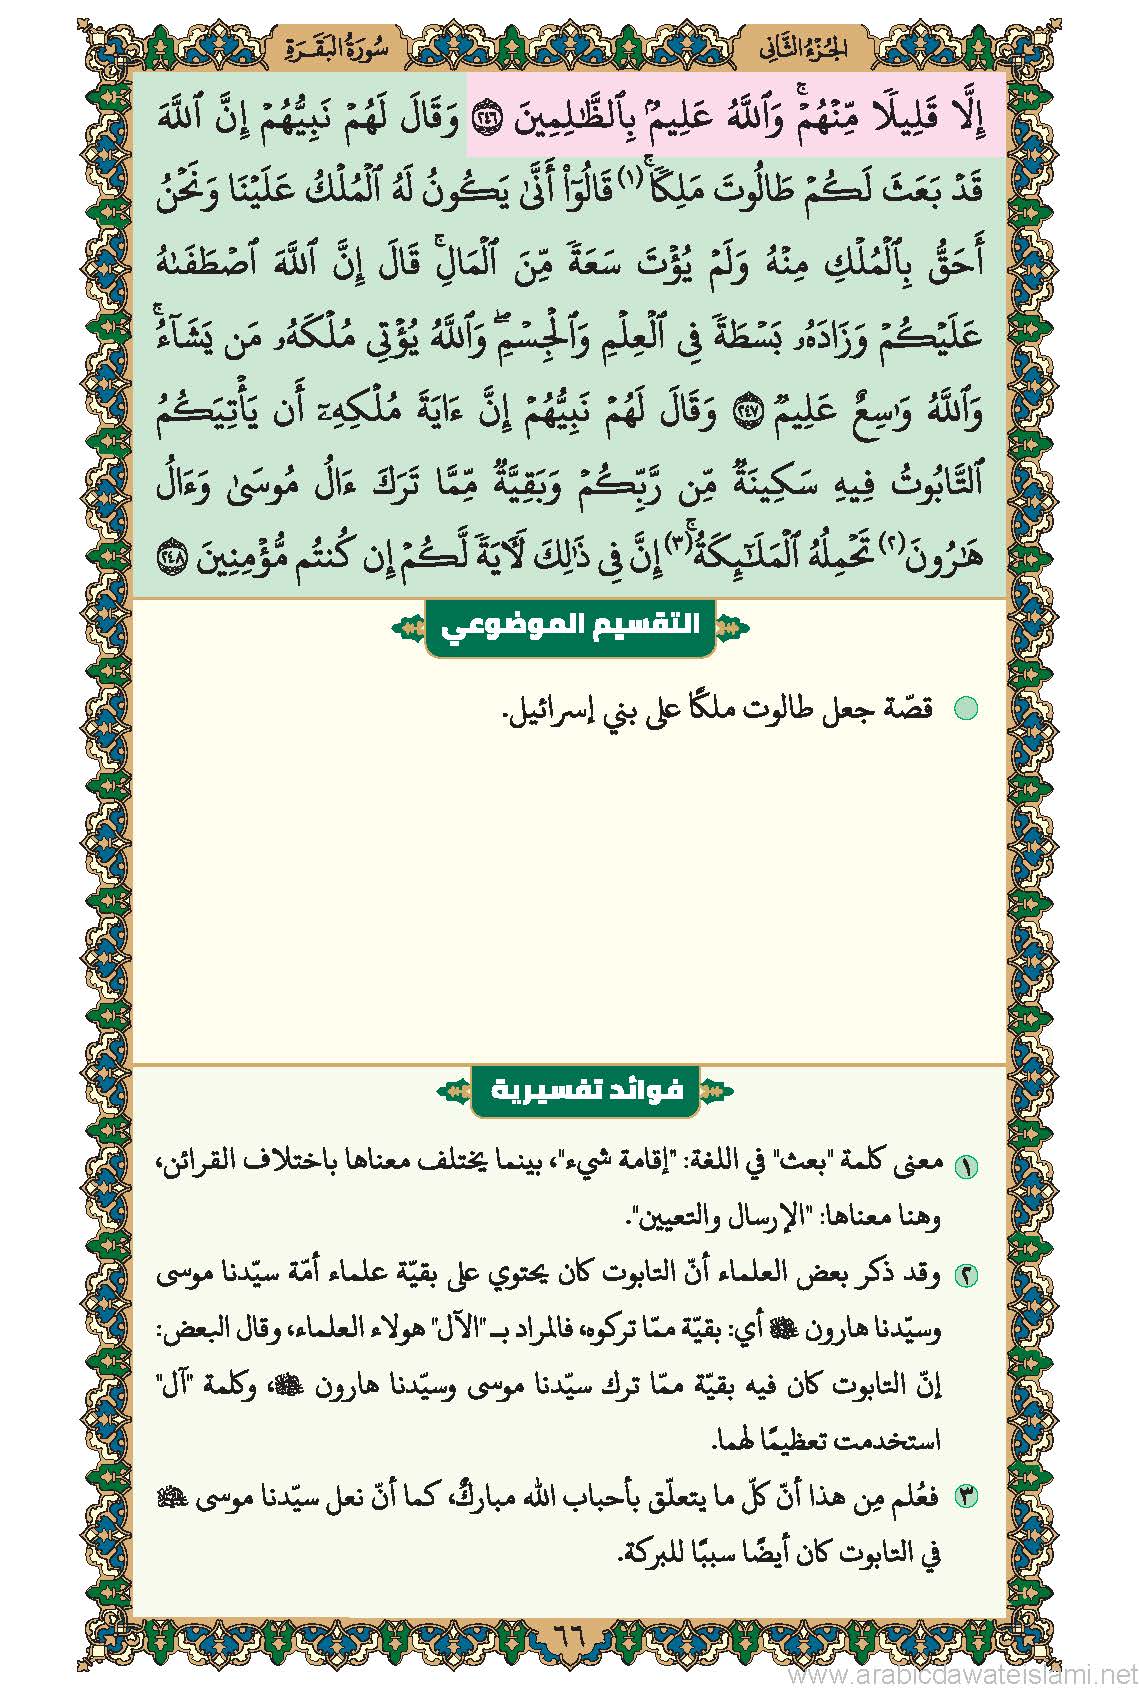 الجُزْءُ الثَّانِي
سُورَةُ البَقَرَةِ
إِلَّا قَلِيلٗا مِّنۡهُمۡۚ وَٱللَّهُ عَلِيمُۢ بِٱلظَّٰلِمِينَ ٢٤٦ وَقَالَ لَهُمۡ نَبِيُّهُمۡ إِنَّ ٱللَّهَ
قَدۡ بَعَثَ لَكُمۡ طَالُوتَ مَلِكٗاۚ(١) قَالُوٓاْ أَنَّىٰ يَكُونُ لَهُ ٱلۡمُلۡكُ عَلَيۡنَا وَنَحۡنُ
أَحَقُّ بِٱلۡمُلۡكِ مِنۡهُ وَلَمۡ يُؤۡتَ سَعَةٗ مِّنَ ٱلۡمَالِۚ قَالَ إِنَّ ٱللَّهَ ٱصۡطَفَىٰهُ
عَلَيۡكُمۡ وَزَادَهُۥ بَسۡطَةٗ فِي ٱلۡعِلۡمِ وَٱلۡجِسۡمِۖ وَٱللَّهُ يُؤۡتِي مُلۡكَهُۥ مَن يَشَآءُۚ
وَٱللَّهُ وَٰسِعٌ عَلِيمٞ ٢٤٧ وَقَالَ لَهُمۡ نَبِيُّهُمۡ إِنَّ ءَايَةَ مُلۡكِهِۦٓ أَن يَأۡتِيَكُمُ
ٱلتَّابُوتُ فِيهِ سَكِينَةٞ مِّن رَّبِّكُمۡ وَبَقِيَّةٞ مِّمَّا تَرَكَ ءَالُ مُوسَىٰ وَءَالُ
هَٰرُونَ(٢) تَحۡمِلُهُ ٱلۡمَلَٰٓئِكَةُۚ(٣) إِنَّ فِي ذَٰلِكَ لَأٓيَةٗ لَّكُمۡ إِن كُنتُم مُّؤۡمِنِينَ ٢٤٨
التقسيم الموضوعي
قصّة جعل طالوت ملكًا على بني إسرائيل.
فوائد تفسيرية
١ معنى كلمة "بعث" في اللغة: "إقامة شيء"، بينما يختلف معناها باختلاف القرائن،
وهنا معناها: "الإرسال والتعيين".
٢ وقد ذكر بعض العلماء أنّ التابوت كان يحتوي على بقيّة علماء أمّة سيّدنا موسى
وسيّدنا هارون أي: بقيّة ممّا تركوه، فالمراد بـ "الآل" هولاء العلماء، وقال البعض:
إنّ التابوت كان فيه بقيّة ممّا ترك سيّدنا موسى وسيّدنا هارون ، وكلمة "آل"
استخدمت تعظيمًا لهما.
٣ فعُلم مِن هذا أنّ كلّ ما يتعلّق بأحباب الله مباركٌ، كما أنّ نعل سيّدنا موسى
في التابوت كان أيضًا سببًا للبركة.
٦٦
www.arabicdawateislami.net